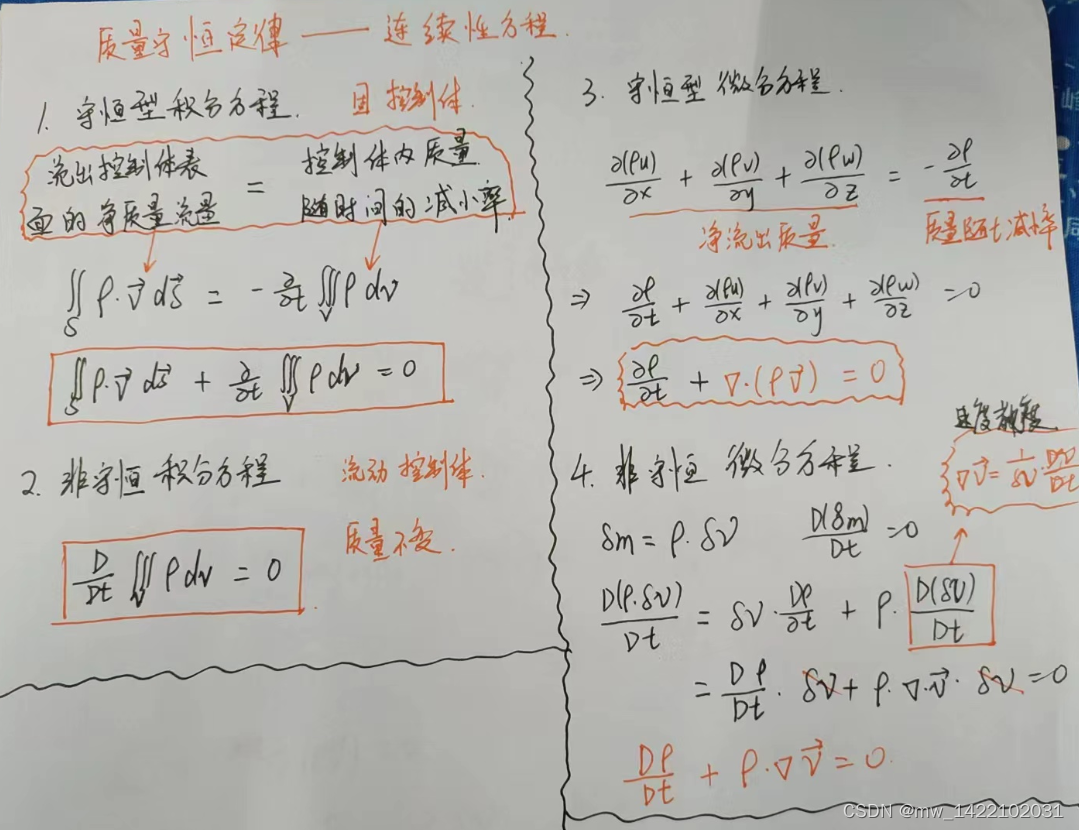 质量守恒定律 —— 连续性方程.
1. 守恒型积分方程. 固控制体.
流出控制体表面的净质量流量 = 控制体内质量随时间的减小率.
∬_S ρ·v⃗ ds⃗ = -∂/∂t ∭_V ρ dv
∬_S ρ·v⃗ ds⃗ + ∂/∂t ∭_V ρ dv = 0
2. 非守恒积分方程 流动控制体.
质量不变.
D/Dt ∭_V ρ dv = 0
3. 守恒型微分方程.
∂(ρu)/∂x + ∂(ρv)/∂y + ∂(ρw)/∂z = -∂ρ/∂t
净流出质量. 质量随t减率
⇒ ∂ρ/∂t + ∂(ρu)/∂x + ∂(ρv)/∂y + ∂(ρw)/∂z = 0
⇒ ∂ρ/∂t + ∇·(ρv⃗) = 0
4. 非守恒 微分方程.
速度散度
∇v⃗ = 1/δv · Dδv/Dt
δm = ρ·δv D(δm)/Dt = 0
D(ρ·δv)/Dt = δv·Dρ/∂t + ρ·D(δv)/Dt
= Dρ/Dt · δv + ρ·∇·v⃗· δv = 0
Dρ/Dt + ρ·∇v⃗ = 0.
CSDN @mw_1422102031